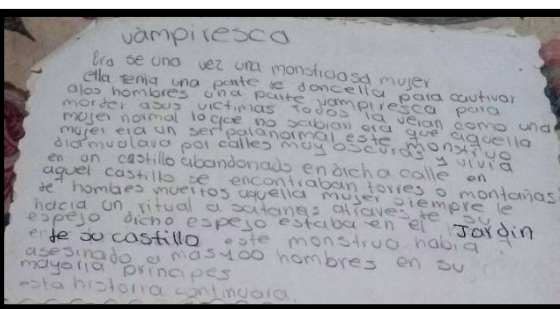 vampiresca
Era se una vez una monstruosa mujer
ella tenia una parte de doncella para cautivar
alos hombres una parte vampiresca para
morder asus victimas todos la veían como una
mujer normal lo que no sabian era que aquella
mujer era un ser palanormal este monstruo
diamvulava por calles muy oscuras y vivia
en un castillo abandonado en dicha calle en
aquel castillo se encontraban torres o montañas
de hombres muertos aquella mujer siempre le
hacia un ritual a satanas atraves de su
espejo dicho espejo estaba en el Jardin
de su castillo este monstruo habia
asesinado a mas 100 hombres en su
mayoria principes
esta historia continuara.